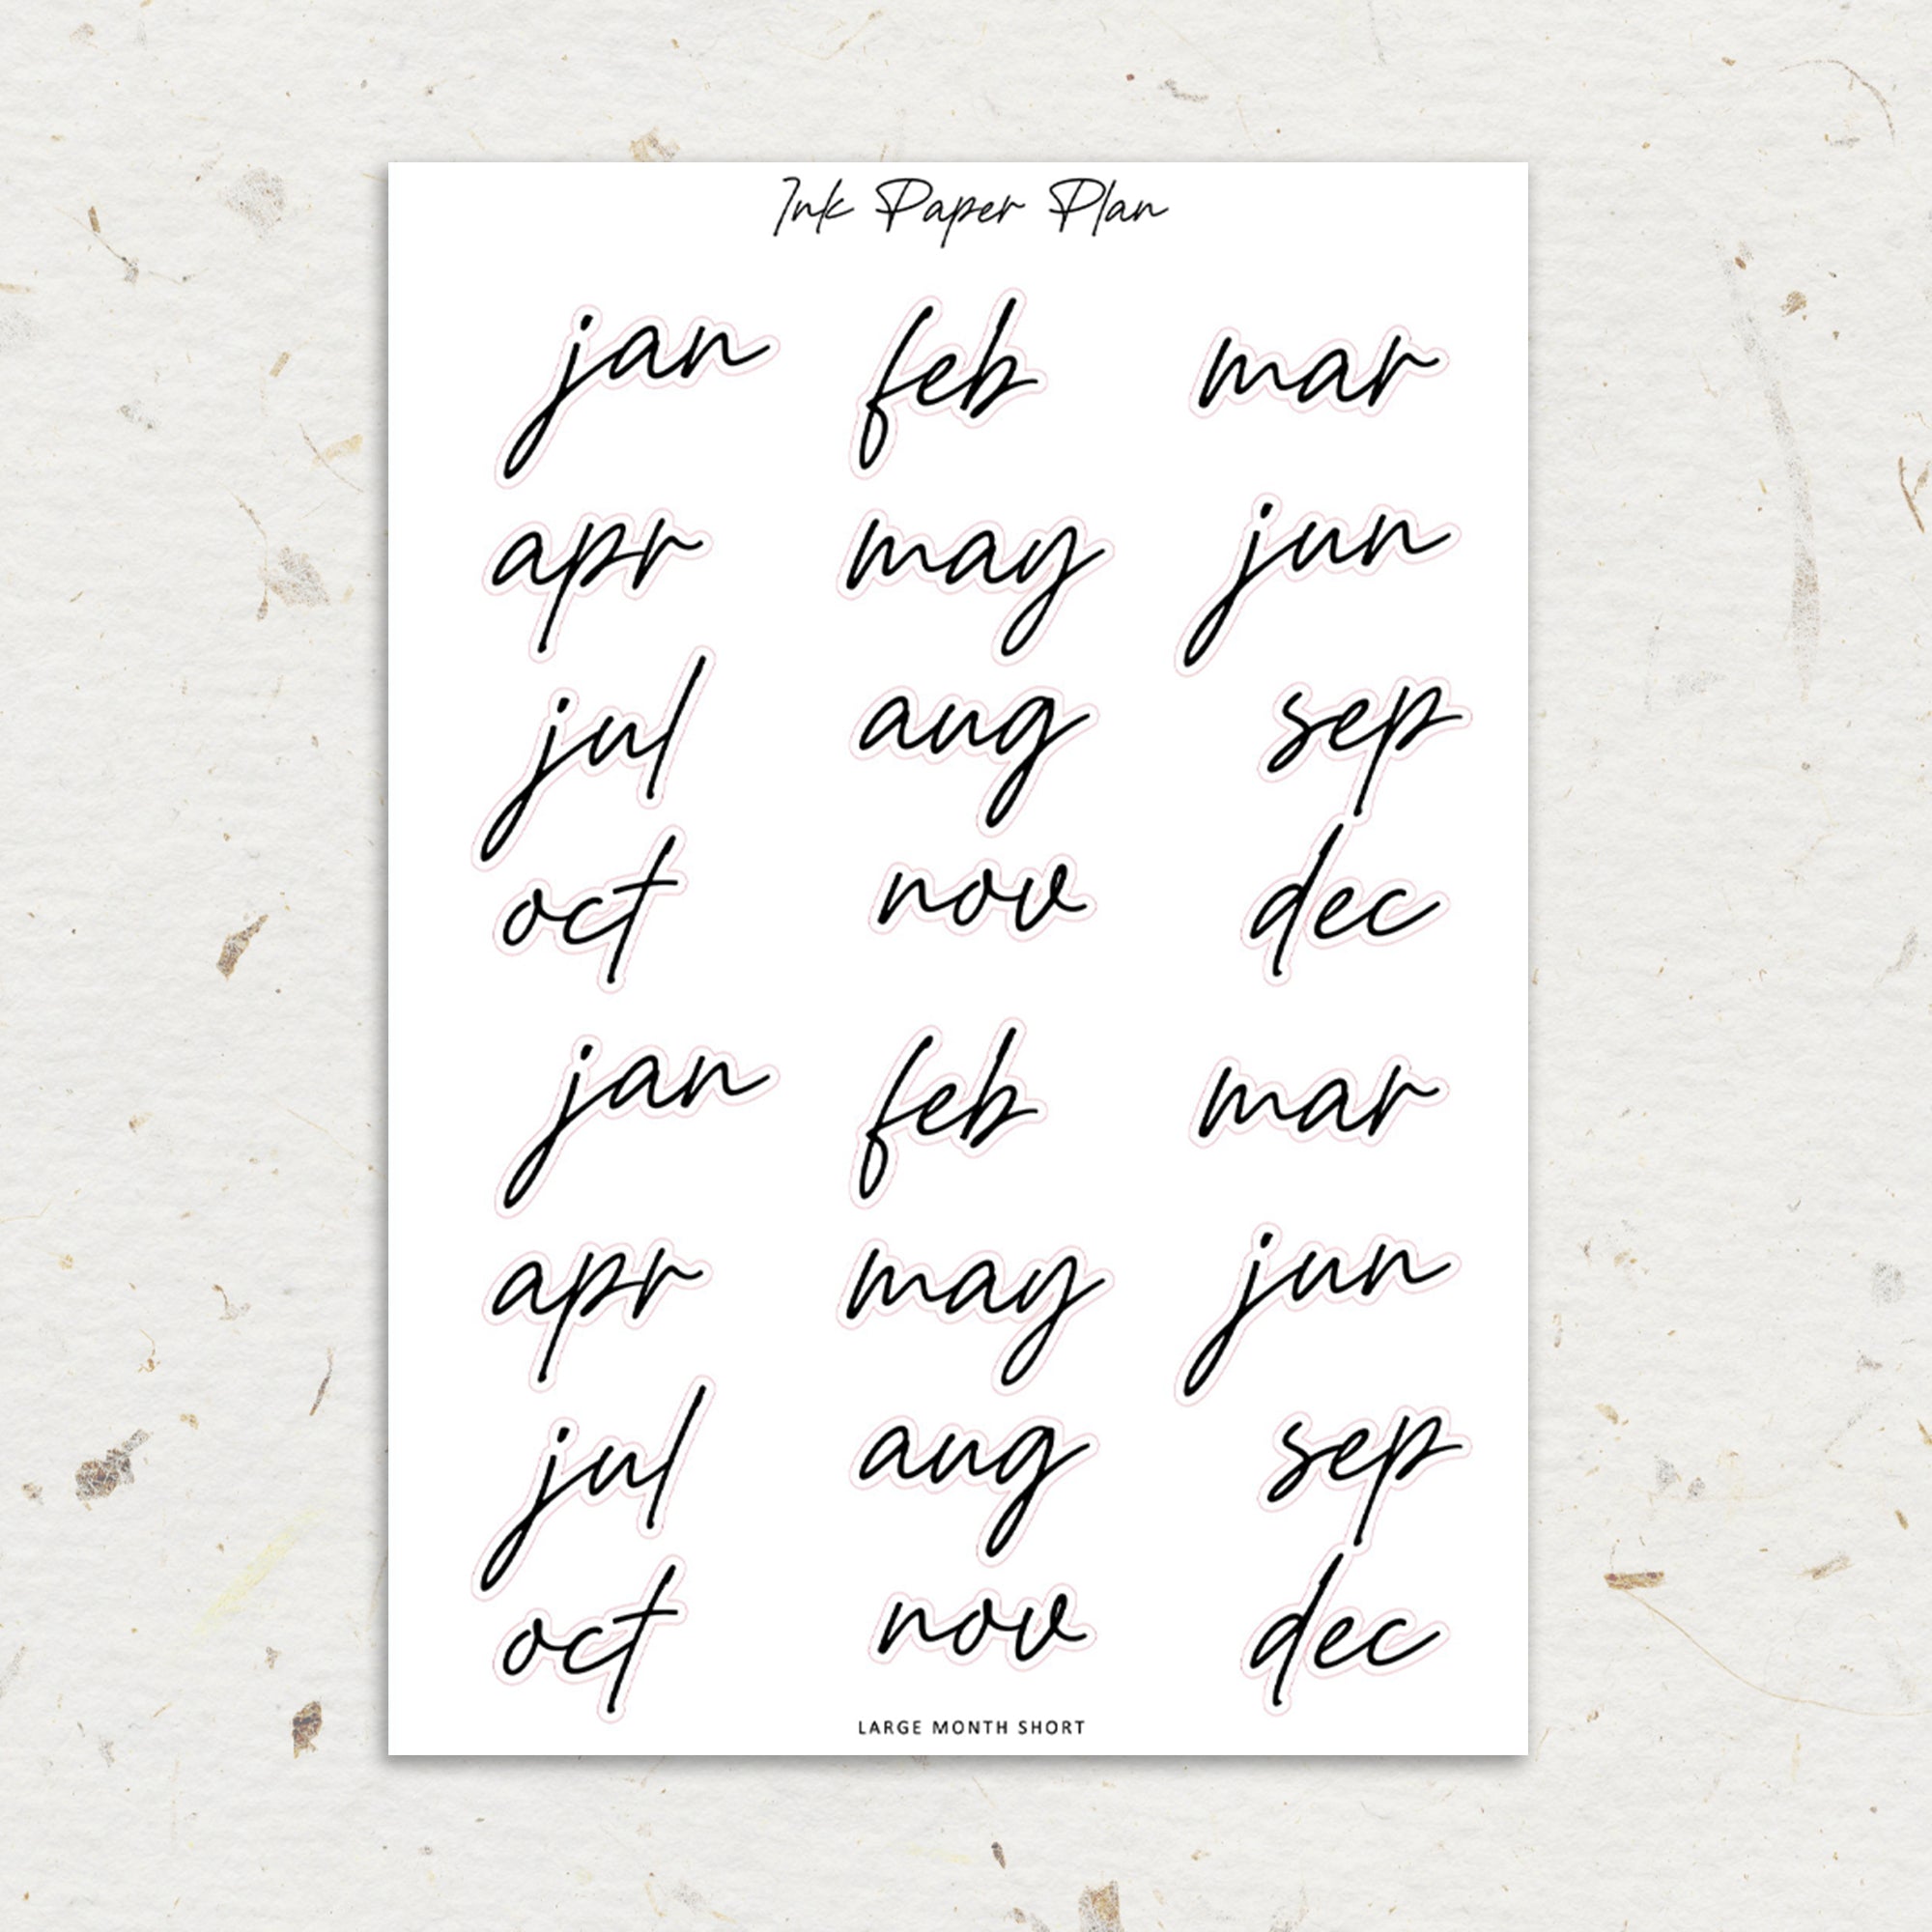 Ink Paper Plan
jan feb mar
apr may jun
jul aug sep
oct nov dec
jan feb mar
apr may jun
jul aug sep
oct nov dec
LARGE MONTH SHORT